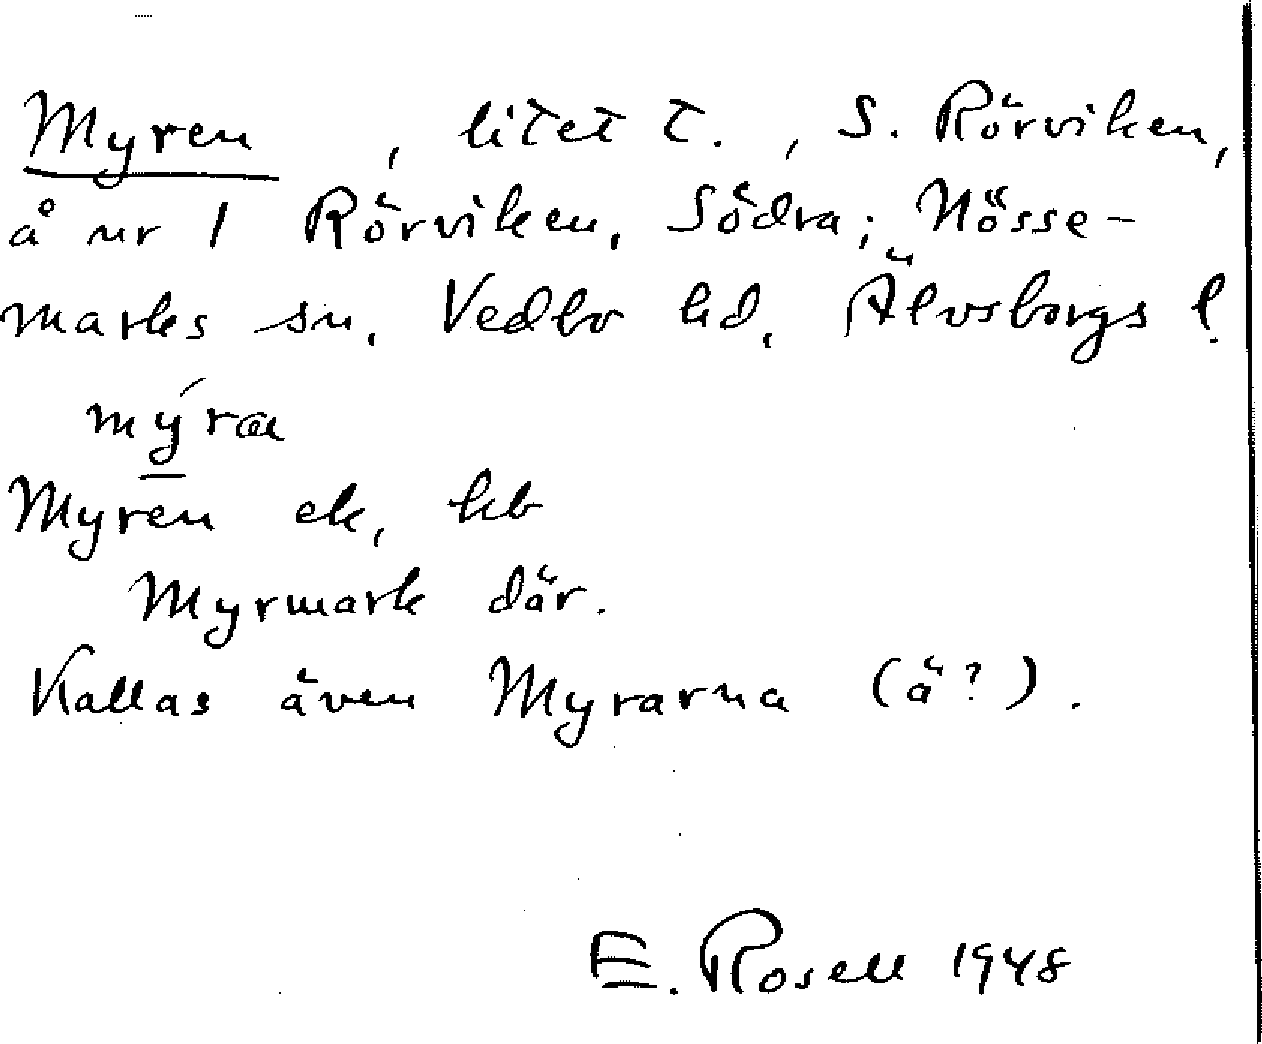 Myren , litet t. , S. Rörviken,
å nr 1 Rörviken, Södra; Nösse-
marks sn, Vedbo hd, Älvsborgs l.
mýra
Myren ek, kb
Myrmark där.
Kallas även Myrarna (ä?).
E. Rosell 1948